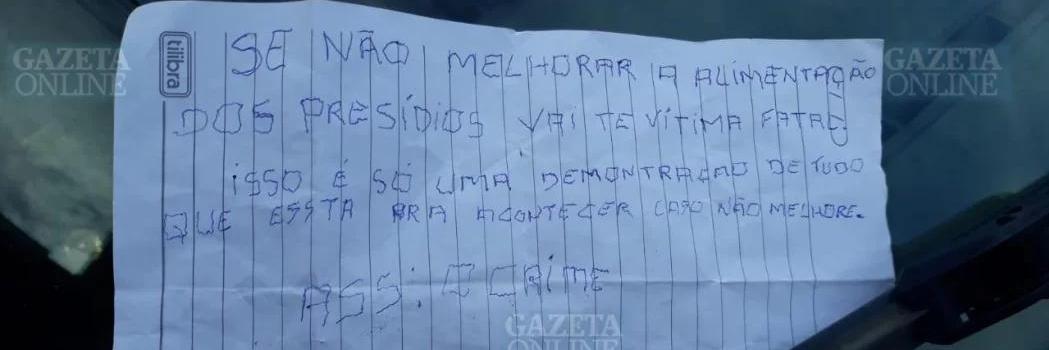 GAZETA
ONLINE
GAZETA
ONLINE
tilibra
SE NÃO MELHORAR A ALIMENTAÇÃO
DOS PRESÍDIOS VAI TE VÍTIMA FATAL
ISSO É SÓ UMA DEMONTRAÇÃO DE TUDO
QUE ESSTA PRA ACONTECER CASO NÃO MELHORE.
ASS: O CRIME
GAZETA
ONLINE